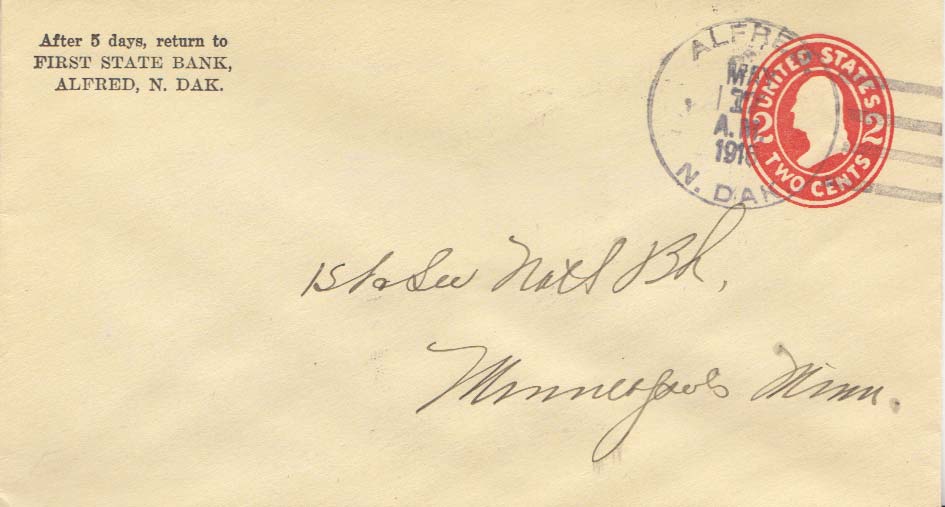 After 5 days, return to
FIRST STATE BANK,
ALFRED, N. DAK.
ALFRED
A.M.
N. DAK
UNITED STATES
2 2
TWO CENTS
1st & Sec Natl Bk,
Minneapolis Minn.